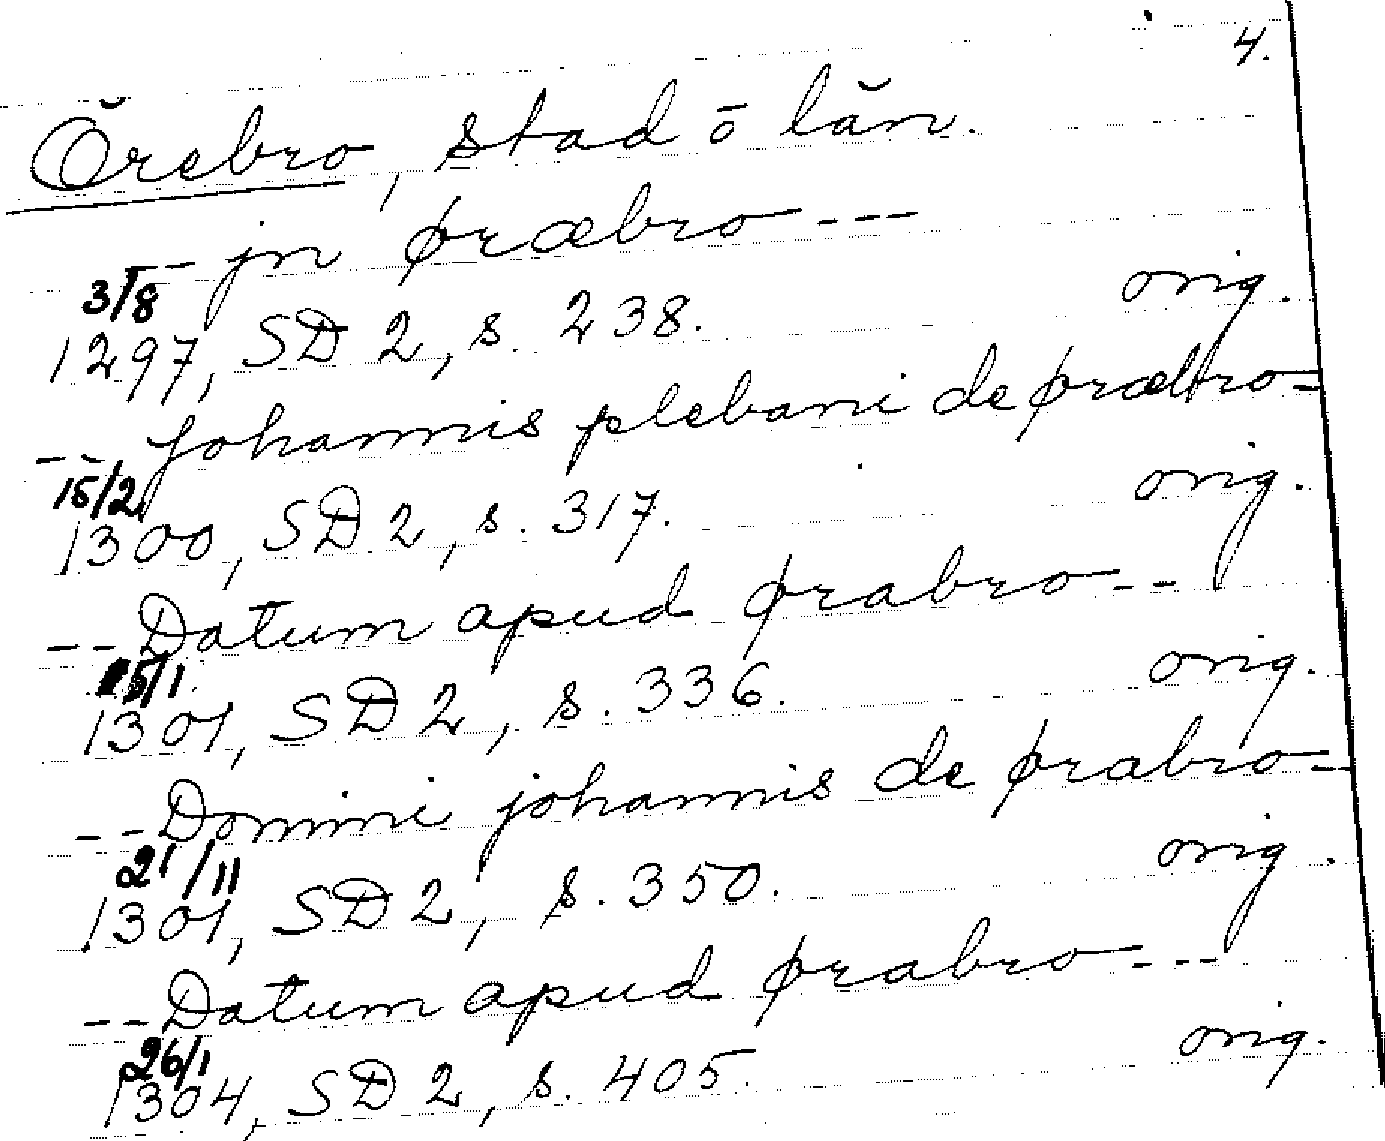 4.
Örebro, stad o län.
--- jn øræbro ---
3/8
1297, SD 2, s. 238. orig.
--- Johannis plebani de øræbro-
15/2
1300, SD 2, s. 317. orig.
-- Datum apud ørabro ---
25/1
1301, SD 2, s. 336. orig.
-- Domini johannis de ørabro-
21/11
1301, SD 2, s. 350. orig.
-- Datum apud ørabro ---
26/1
1304, SD 2, s. 405. orig.